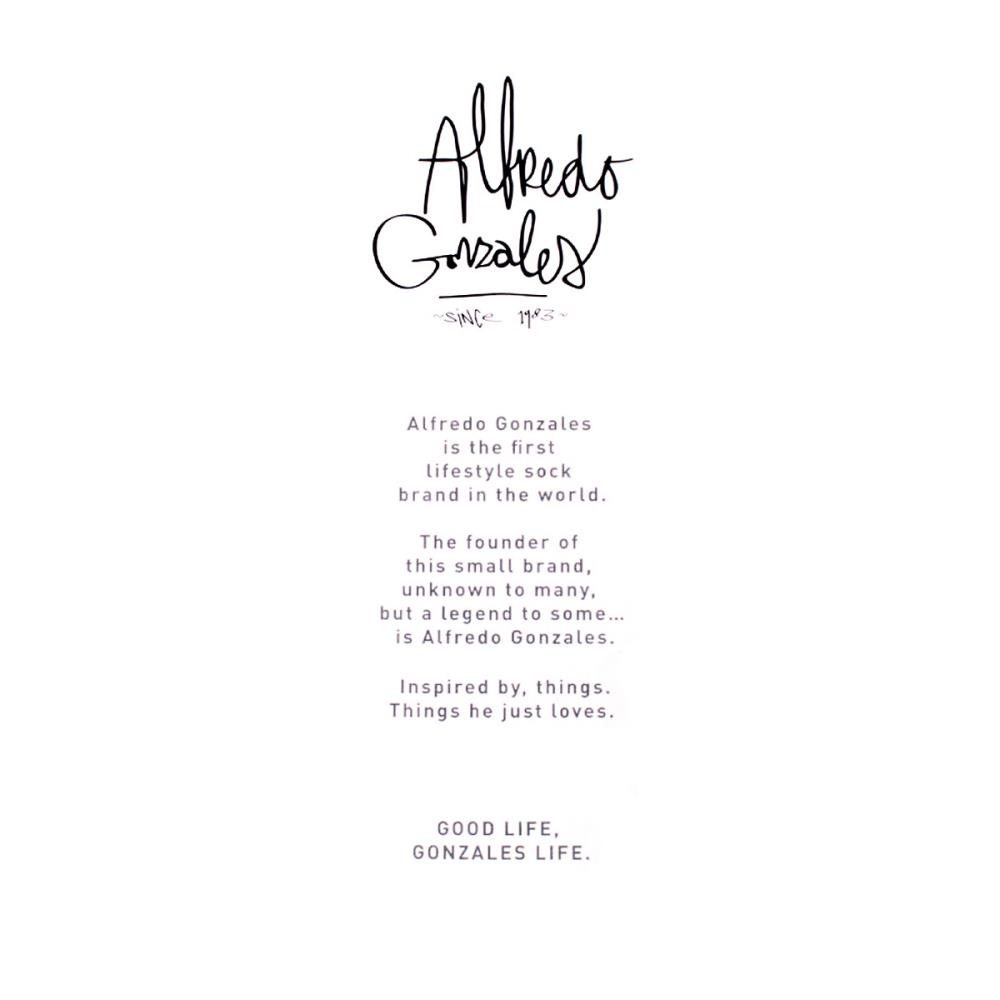 Alfredo
Gonzales
~SINCE 1983~
Alfredo Gonzales
is the first
lifestyle sock
brand in the world.
The founder of
this small brand,
unknown to many,
but a legend to some...
is Alfredo Gonzales.
Inspired by, things.
Things he just loves.
GOOD LIFE,
GONZALES LIFE.